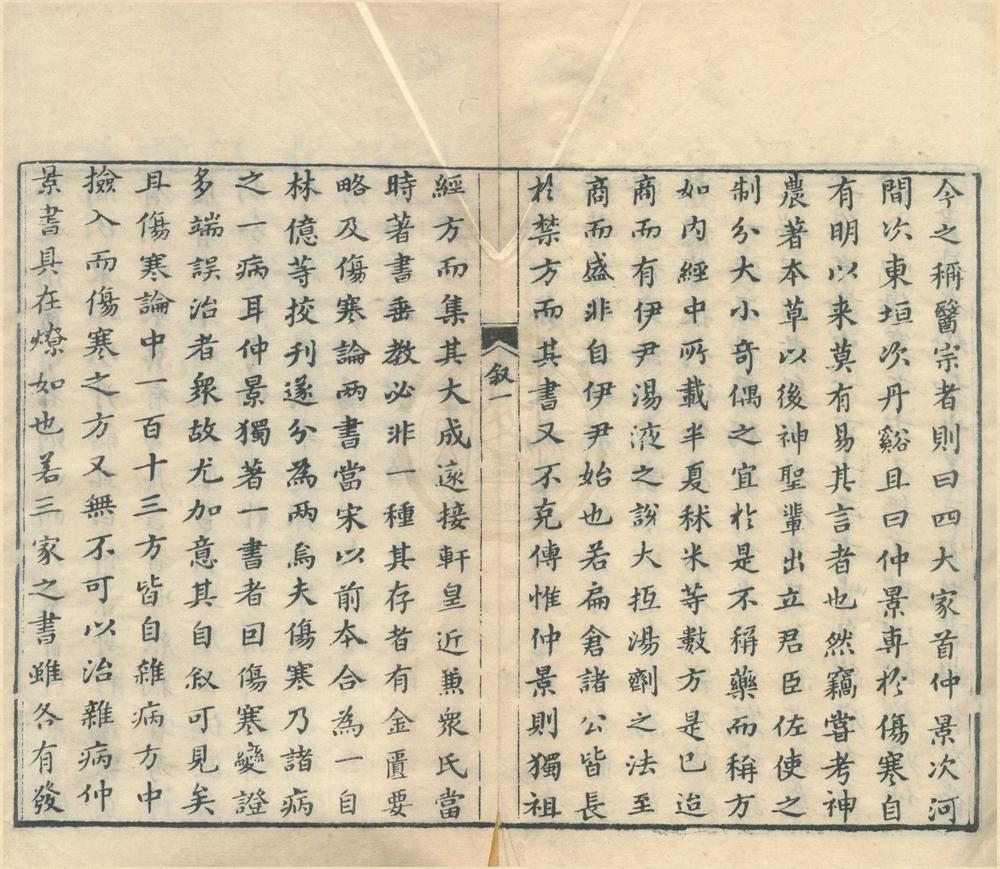 今之稱醫宗者則曰四大家首仲景次河
間次東垣次丹谿且曰仲景専於傷寒自
有明以来莫有易其言者也然竊嘗考神
農著本草以後神聖輩出立君臣佐使之
制分大小奇偶之宜於是不稱藥而稱方
如内經中所載半夏秫米等數方是已迨
商而有伊尹湯液之說大抵湯劑之法至
商而盛非自伊尹始也若扁倉諸公皆長
於禁方而其書又不克傳惟仲景則獨祖
叙一
經方而集其大成遠接軒皇近兼衆氏當
時著書垂教必非一種其存者有金匱要
略及傷寒論兩書當宋以前本合為一自
林億等挍刊遂分為兩焉夫傷寒乃諸病
之一病耳仲景獨著一書者因傷寒變證
多端誤治者衆故尤加意其自叙可見矣
且傷寒論中一百十三方皆自雜病方中
撿入而傷寒之方又無不可以治雜病仲
景書具在燎如也若三家之書雖各有發